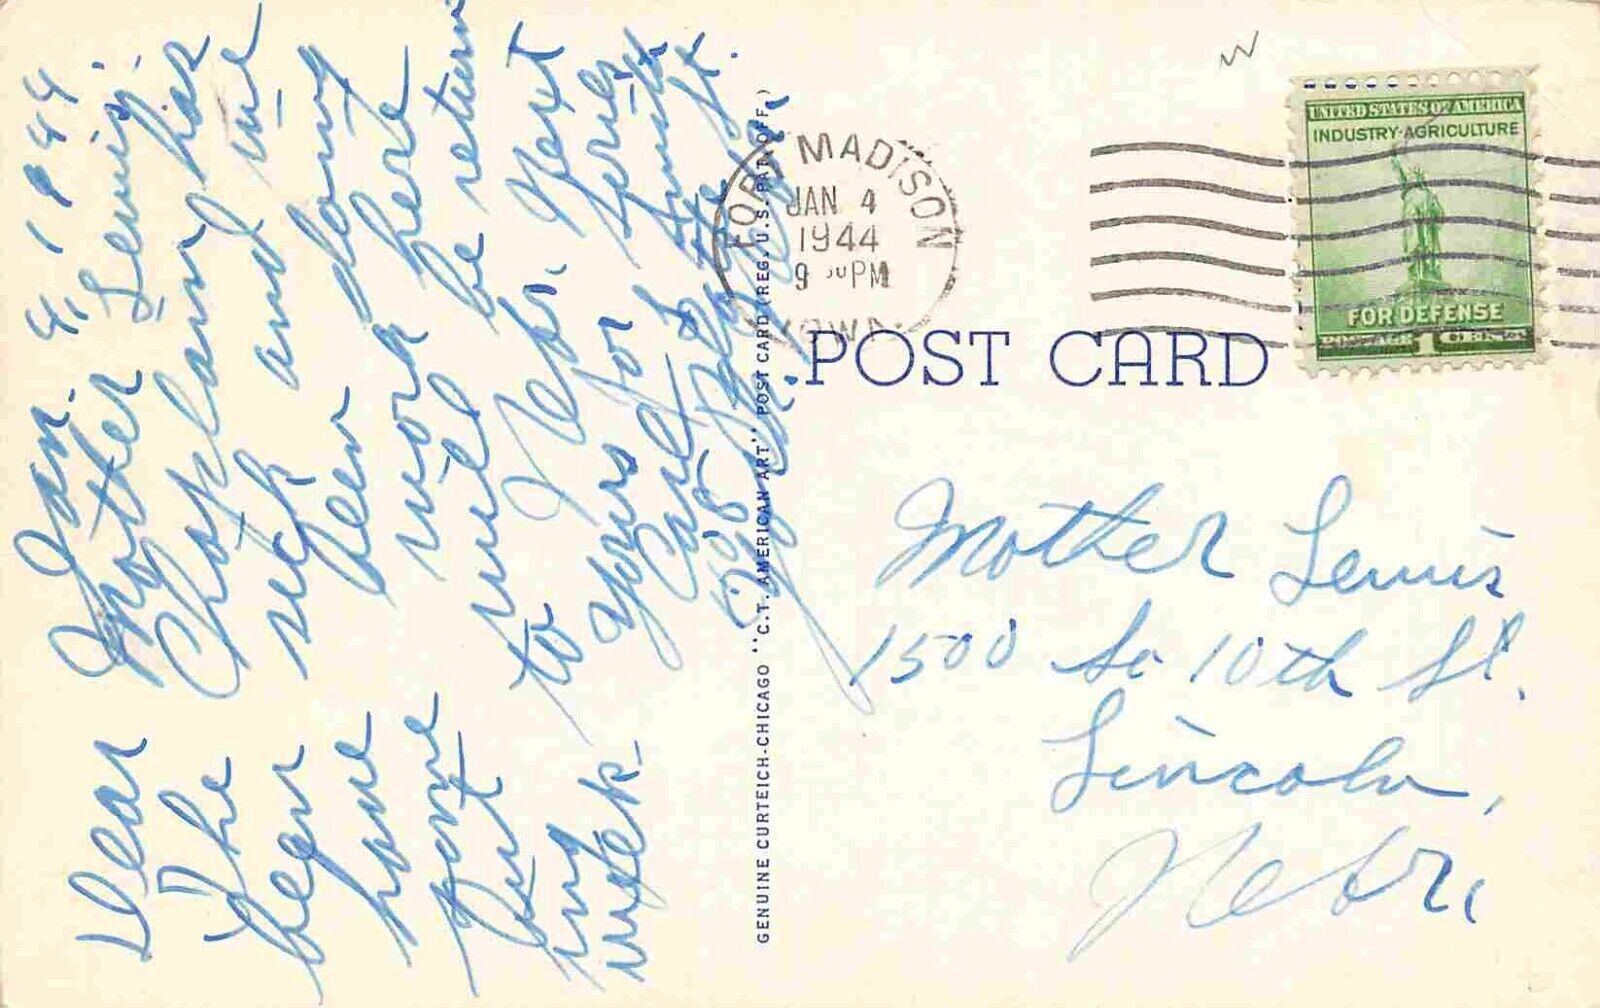 Jan. 4, 1944
Dear Mother Lewis:
The Chaplain has
been sick and we
have been doing
some work here
but will be return
ing to Nebr. Next
week.
yours for
Carl &
528
FORT MADISON
JAN 4
1944
9 PM
IOWA
UNITED STATES OF AMERICA
INDUSTRY-AGRICULTURE
FOR DEFENSE
1
POST CARD
GENUINE CURTEICH-CHICAGO "C.T. AMERICAN ART" POST CARD (REG. U.S. PAT. OFF.)
Mother Lewis
1500 So 10th St.
Lincoln,
Nebr.